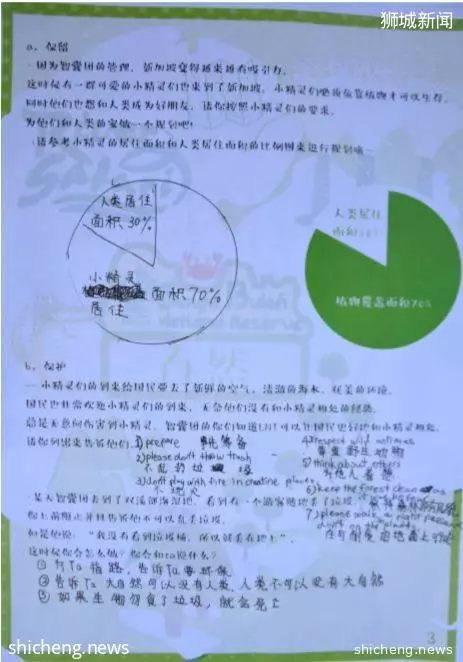 狮城新闻
a、保留
一因为智囊团的管理，新加坡变得越来越有吸引力。
这时候有一群可爱的小精灵们也来到了新加坡，小精灵们必须依靠植物才可以生存，
同时他们也想和人类成为好朋友，请你按照小精灵们的要求，
为他们和人类的家做一个规划吧！
请参考小精灵的居住面积和人类居住面积的比例图来进行规划哦
人类居住
面积30%
小精灵
面积70%
居住
人类居住
面积
植物覆盖面积70%
b、保护
一小精灵们的到来给国民带去了新鲜的空气，清澈的海水，优美的环境。
国民也非常欢迎小精灵们的到来，无奈他们没有和小精灵相处的经验，
总是无意间伤害到小精灵，智囊团的你们知道LNT可以让国民更好地和小精灵相处，
请你列出来告诉他们
1) prepare 事先准备
2) please don't throw trash
不乱扔垃圾
3) don't play with fire in place
不玩火
4) respect wild animals
尊重野生动物
5) think about others
为他人着想
6) keep the forest clean
7) please walk
在与耐受的地面上行走
一某天智囊团去到了双溪部落湿地，看到有一个游客随地丢了垃圾，
你上前阻止并且告诉他不可以乱丢垃圾，
但是他说：“我没有看到垃圾桶，所以就丢在地上”，
这时候你会怎么做？你会和ta说什么？
① 为Ta指路，告诉Ta要环保
② 告诉Ta大自然可以没有人类，人类不可以没有大自然
③ 如果生物勿食了垃圾，就会死亡
3
shicheng.news
shicheng.news